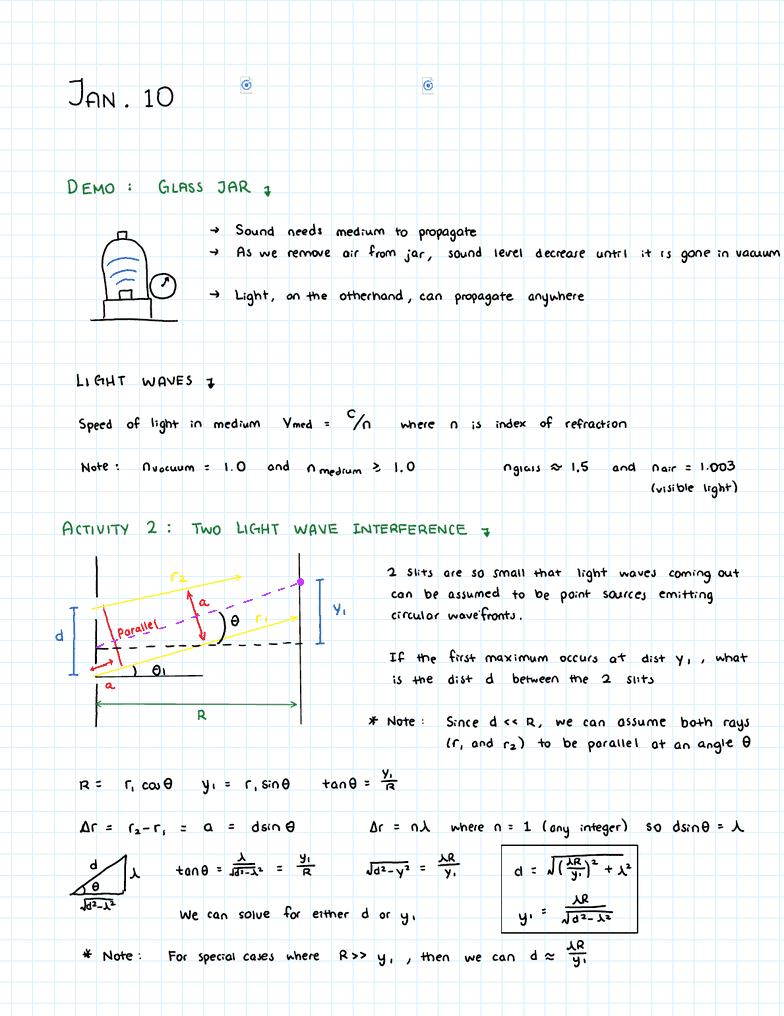 JAN. 10
DEMO : GLASS JAR ↴
→ Sound needs medium to propagate
→ As we remove air from jar, sound level decrease until it is gone in vacuum
→ Light, on the otherhand, can propagate anywhere
LIGHT WAVES ↴
Speed of light in medium Vmed = c/n where n is index of refraction
Note : nvacuum = 1.0 and nmedium ≥ 1.0 nglass ≈ 1.5 and nair = 1.003
(visible light)
ACTIVITY 2 : TWO LIGHT WAVE INTERFERENCE ↴
r2
a
r1
parallel
θ
y1
d
θ1
a
R
2 slits are so small that light waves coming out
can be assumed to be point sources emitting
circular wavefronts.
If the first maximum occurs at dist y1, what
is the dist d between the 2 slits
* Note : Since d << R, we can assume both rays
(r1 and r2) to be parallel at an angle θ
R = r1 cosθ y1 = r1 sinθ tanθ = y1/R
Δr = r2-r1 = a = dsinθ Δr = nλ where n = 1 (any integer) so dsinθ = λ
d
λ
θ
√d²-λ²
tanθ = λ/√d²-λ² = y1/R √d²-y² = λR/y1
d = √(λR/y1)² + λ²
y1 = λR/√d²-λ²
We can solve for either d or y1
* Note : For special cases where R >> y1, then we can d ≈ λR/y1